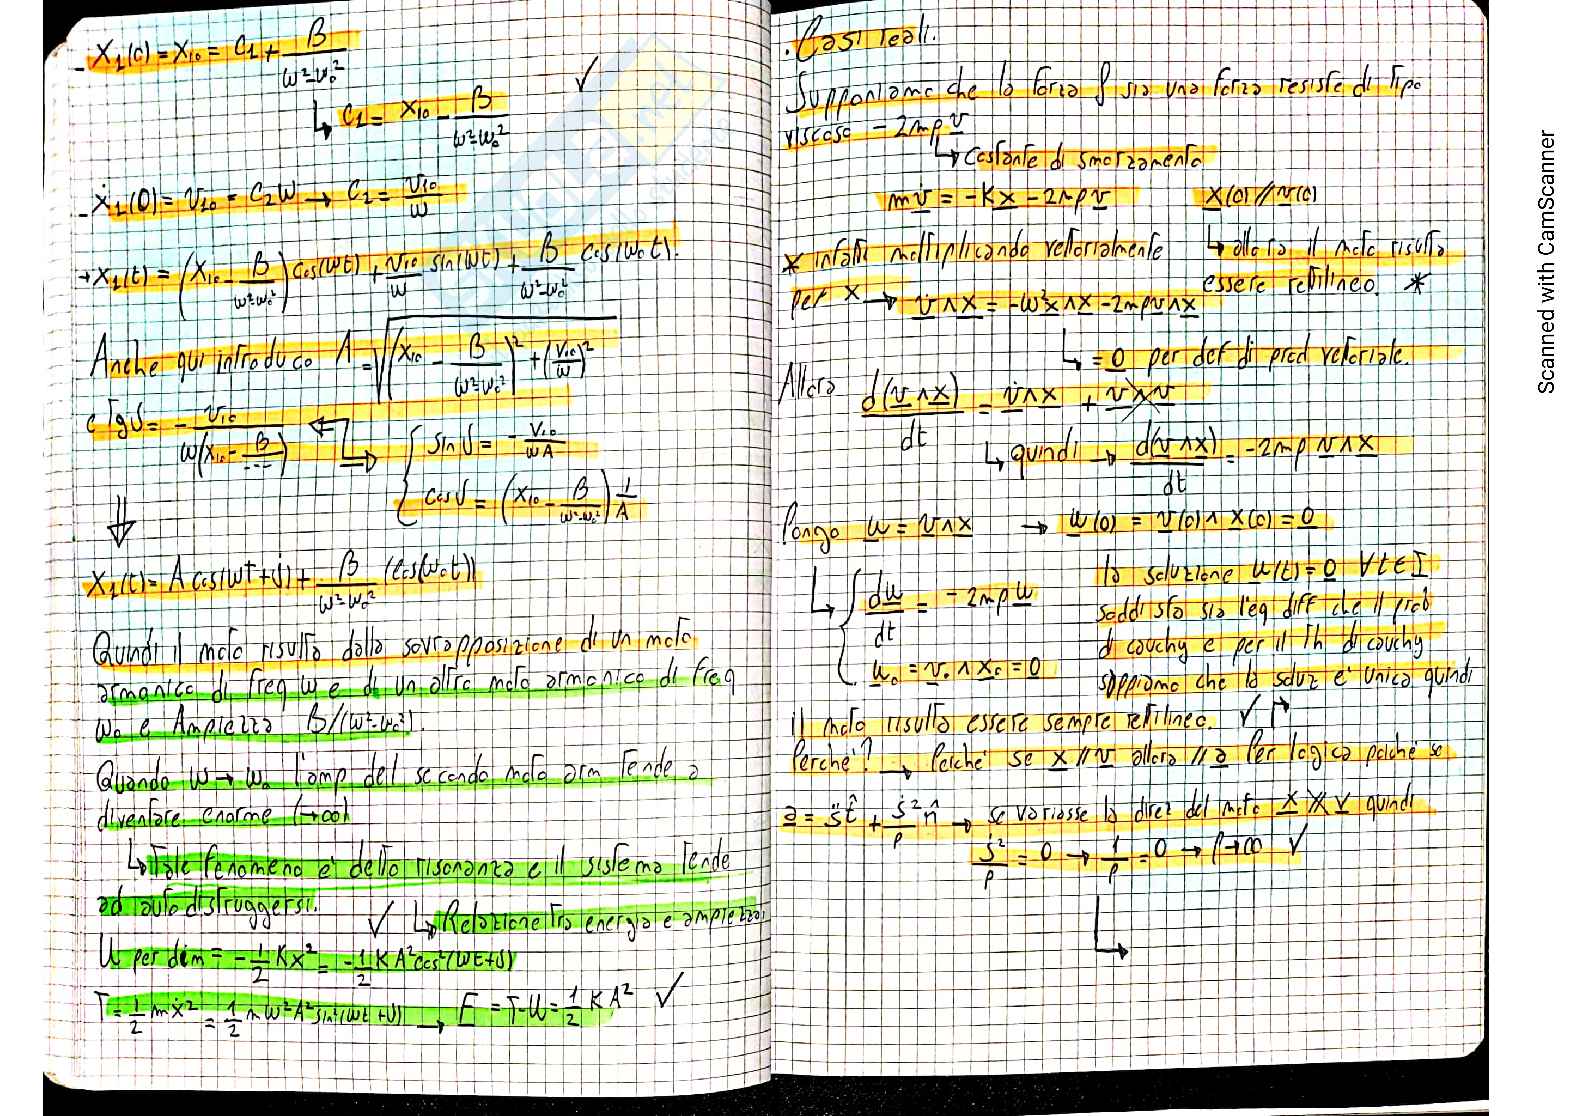 - X₁(0) = X₁₀ = C₁ + B/(ω²-ω₀²)
↳ C₁ = X₁₀ - B/(ω²-ω₀²) ✓
- Ẋ₁(0) = v₁₀ = C₂ω → C₂ = v₁₀/ω
→ X₁(t) = (X₁₀ - B/(ω²-ω₀²)) cos(ωt) + v₁₀/ω sin(ωt) + B/(ω²-ω₀²) cos(ω₀t).
Anche qui introduco A = √((X₁₀ - B/(ω²-ω₀²))² + (v₁₀/ω)²)
e Tgδ = - v₁₀/(ω(X₁₀ - B/---))
{ sin δ = - v₁₀/(ωA)
cos δ = (X₁₀ - B/(ω²-ω₀²)) 1/A
⇓
X₁(t) = A cos(ωt + δ) + B/(ω²-ω₀²) (cos(ω₀t))
Quindi il moto risulta dalla sovrapposizione di un moto
armonico di freq ω e di un altro moto armonico di freq
ω₀ e Ampiezza B/(ω²-ω₀²).
Quando ω → ω₀ l'amp del secondo moto arm tende a
diventare enorme (→∞)
↳ Tale fenomeno e' detto risonanza e il sistema tende
ad autodistruggersi. ✓
↳ Relazione tra energia e ampiezza:
U per dim = -1/2 Kx² = -1/2 K A² cos²(ωt+δ)
T = 1/2 m ẋ² = 1/2 m ω² A² sin²(ωt+δ) → E = T-U = 1/2 K A² ✓
. Casi reali.
Supponiamo che la forza f sia una forza resiste di Tipo
viscoso - 2mp v
↳ Costante di smorzamento
m v̇ = -K x - 2mp v X(0) // v(0)
↳ allora il moto risulta
essere rettilineo. *
* infatti moltiplicando vettorialmente
per X → v̇ ∧ x = -ω² x ∧ x - 2mp v ∧ x
↳ = 0 per def di prod vettoriale.
Allora d(v ∧ x)/dt = v̇ ∧ x + v ∧ v
↳ quindi → d(v ∧ x)/dt = -2mp v ∧ x
Pongo u = v ∧ x → u(0) = v(0) ∧ x(0) = 0
↳ { du/dt = -2mp u
u₀ = v₀ ∧ x₀ = 0
la soluzione u(t) = 0 ∀ t ∈ I
soddisfa sia l'eq diff che il prob
di cauchy e per il Th di cauchy
sappiamo che la soluz e' unica quindi
il moto risulta essere sempre rettilineo. ✓
Perché? → Perché se x // v allora // a Per logica poiché se
a = s̈ t̂ + ṡ²/ρ n̂ → se variasse la direz del moto x ∦ v quindi
ṡ²/ρ = 0 → 1/ρ = 0 → ρ→∞ ✓
Scanned with CamScanner